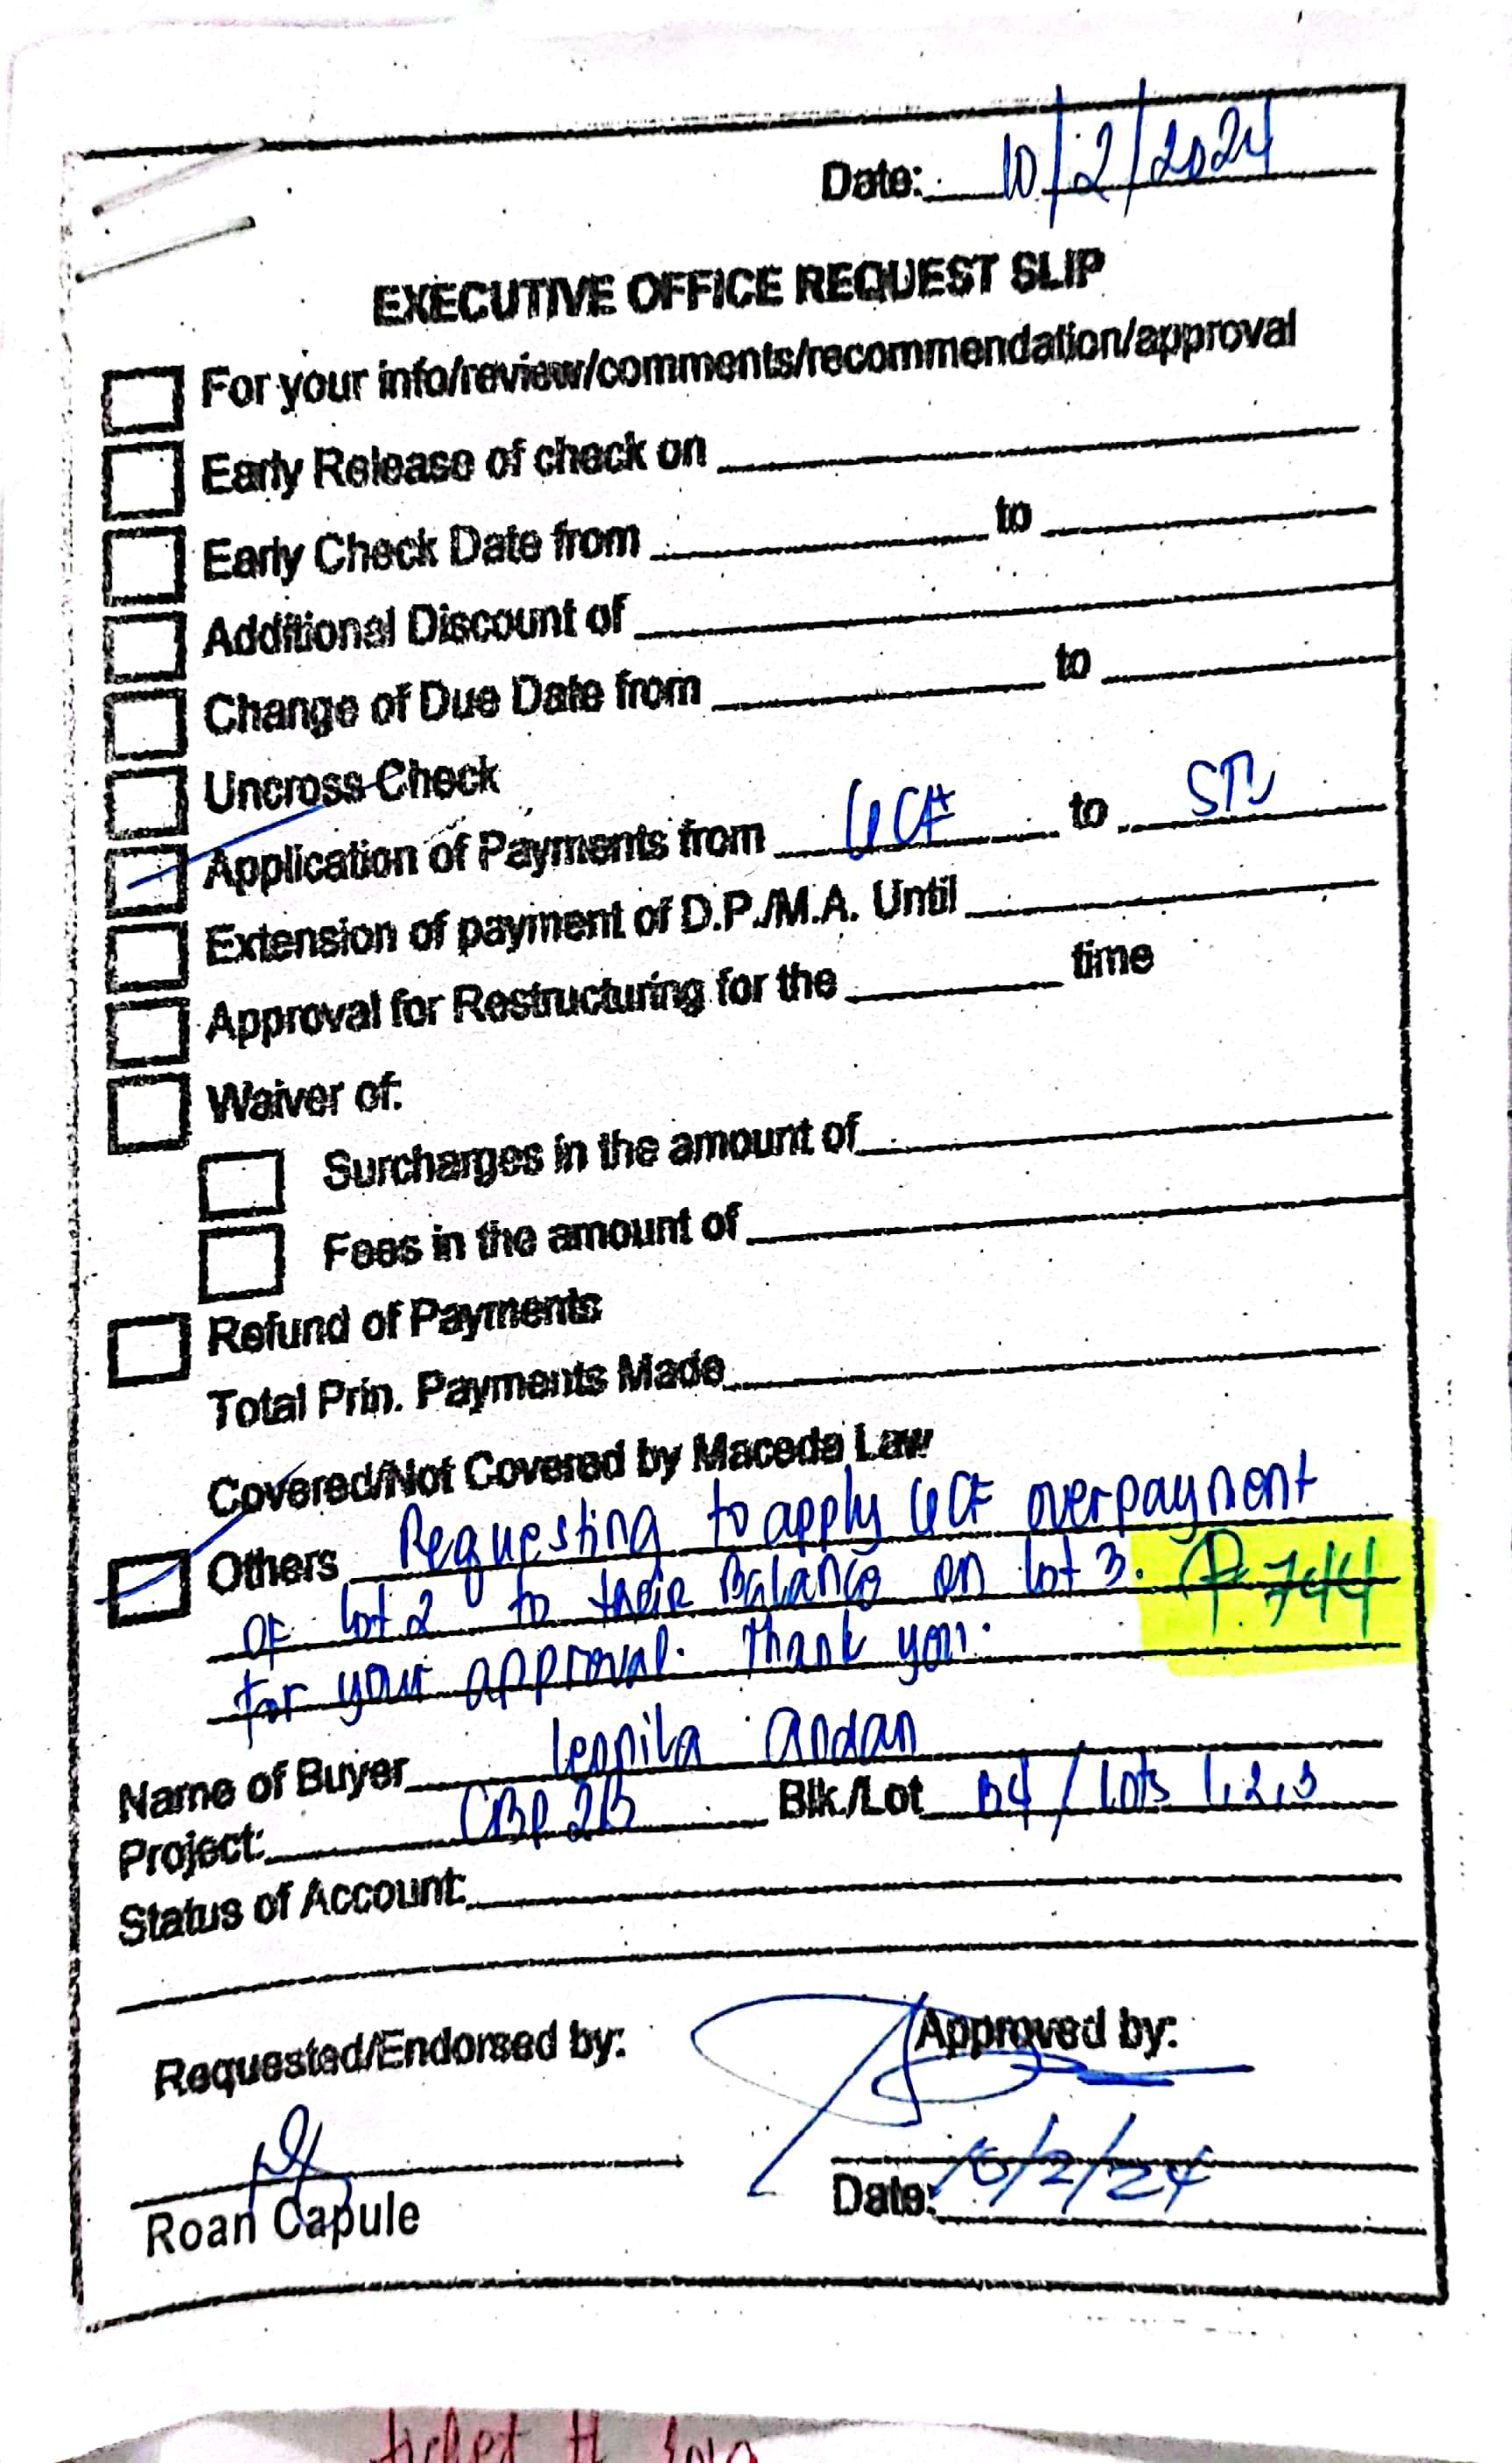 Date: 10/2/2024
EXECUTIVE OFFICE REQUEST SLIP
For your info/review/comments/recommendation/approval
Early Release of check on
Early Check Date from to
Additional Discount of
Change of Due Date from to
Uncross Check
Application of Payments from to
Extension of payment of D.P./M.A. Until
Approval for Restructuring for the time
Waiver of:
Surcharges in the amount of
Fees in the amount of
Refund of Payments
Total Prin. Payments Made
Covered/Not Covered by Maceda Law
Others Requesting to apply overpayment
of lot 2 to their Balance on lot 3. 744
for your approval. Thank you.
Name of Buyer Leonila Andan
Project: Blk./Lot B4 / Lots 1,2,3
Status of Account:
Requested/Endorsed by: Approved by:
Roan Capule
Date: 10/2/24
ticket #